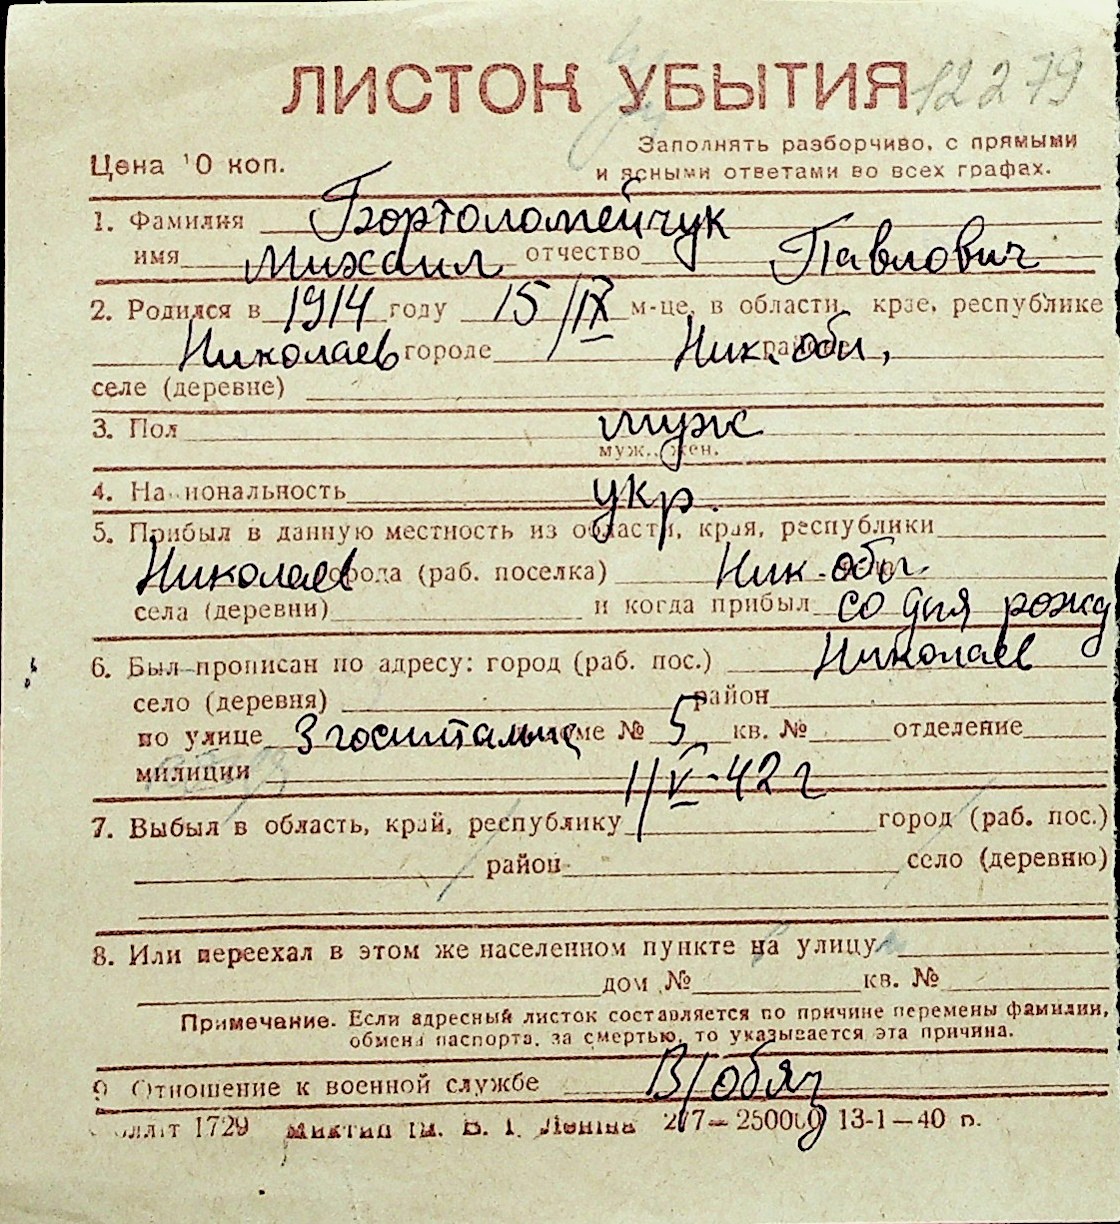 ЛИСТОК УБЫТИЯ 12279
Заполнять разборчиво, с прямыми
Цена 10 коп. и ясными ответами во всех графах.
1. Фамилия Бортоломейчук
имя Михаил отчество Павлович
2. Родился в 1914 году 15/IX м-це, в области, крае, республике
Николаев городе Ник. обл,
селе (деревне)
3. Пол муж
муж., жен.
4. Национальность укр.
5. Прибыл в данную местность из области, края, республики
Николаев города (раб. поселка) Ник. обл.
села (деревни) и когда прибыл со дня рожд
6. Был прописан по адресу: город (раб. пос.) Николаев
село (деревня) район
по улице 3 госпитальн доме № 5 кв. № отделение
милиции 1/V-42 г
7. Выбыл в область, край, республику город (раб. пос.)
район село (деревню)
8. Или переехал в этом же населенном пункте на улицу
дом № кв. №
Примечание. Если адресный листок составляется по причине перемены фамилии,
обмена паспорта, за смертью, то указывается эта причина.
9 Отношение к военной службе В/обяз
1729 2/7—250000 13-1—40 р.